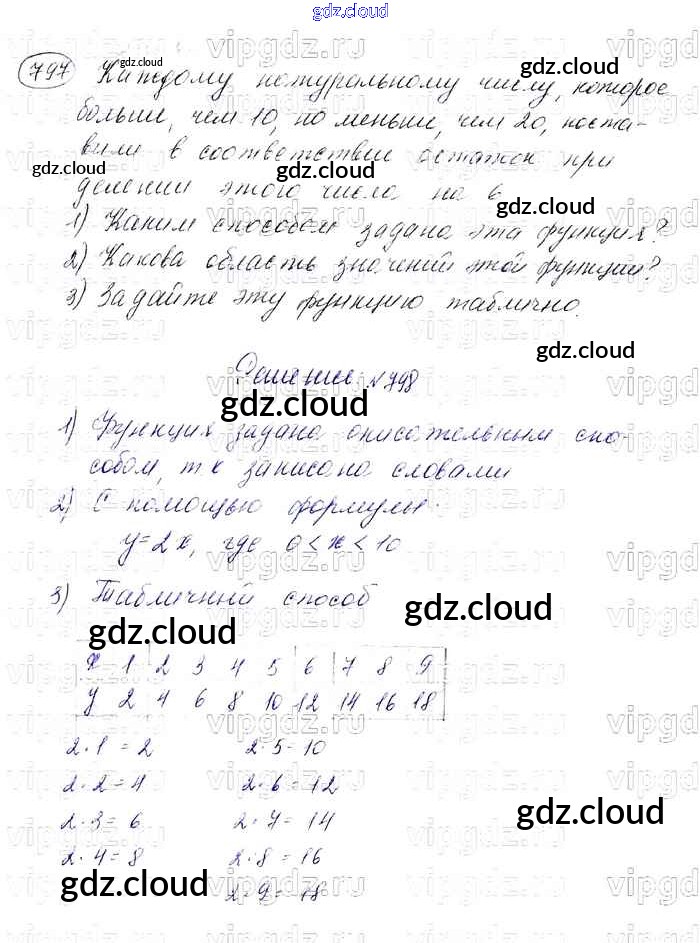 gdz.cloud
797 Каждому натуральному числу, которое
больше, чем 10, но меньше, чем 20, поста-
вили в соответствии остаток при
делении этого числа на 6
1) Каким способом задана эта функция?
2) Какова область значений этой функции?
3) Задайте эту функцию таблично.
Решение №798
1) Функция задана описательным спо-
собом, т к записана словами
2) С помощью формулы.
y=2x, где 0<x<10
3) Табличный способ
x 1 2 3 4 5 6 7 8 9
y 2 4 6 8 10 12 14 16 18
2·1=2 2·5=10
2·2=4 2·6=12
2·3=6 2·7=14
2·4=8 2·8=16
2·9=18
gdz.cloud
gdz.cloud
gdz.cloud
gdz.cloud
gdz.cloud
gdz.cloud
gdz.cloud
gdz.cloud
gdz.cloud
gdz.cloud
vipgdz.ru